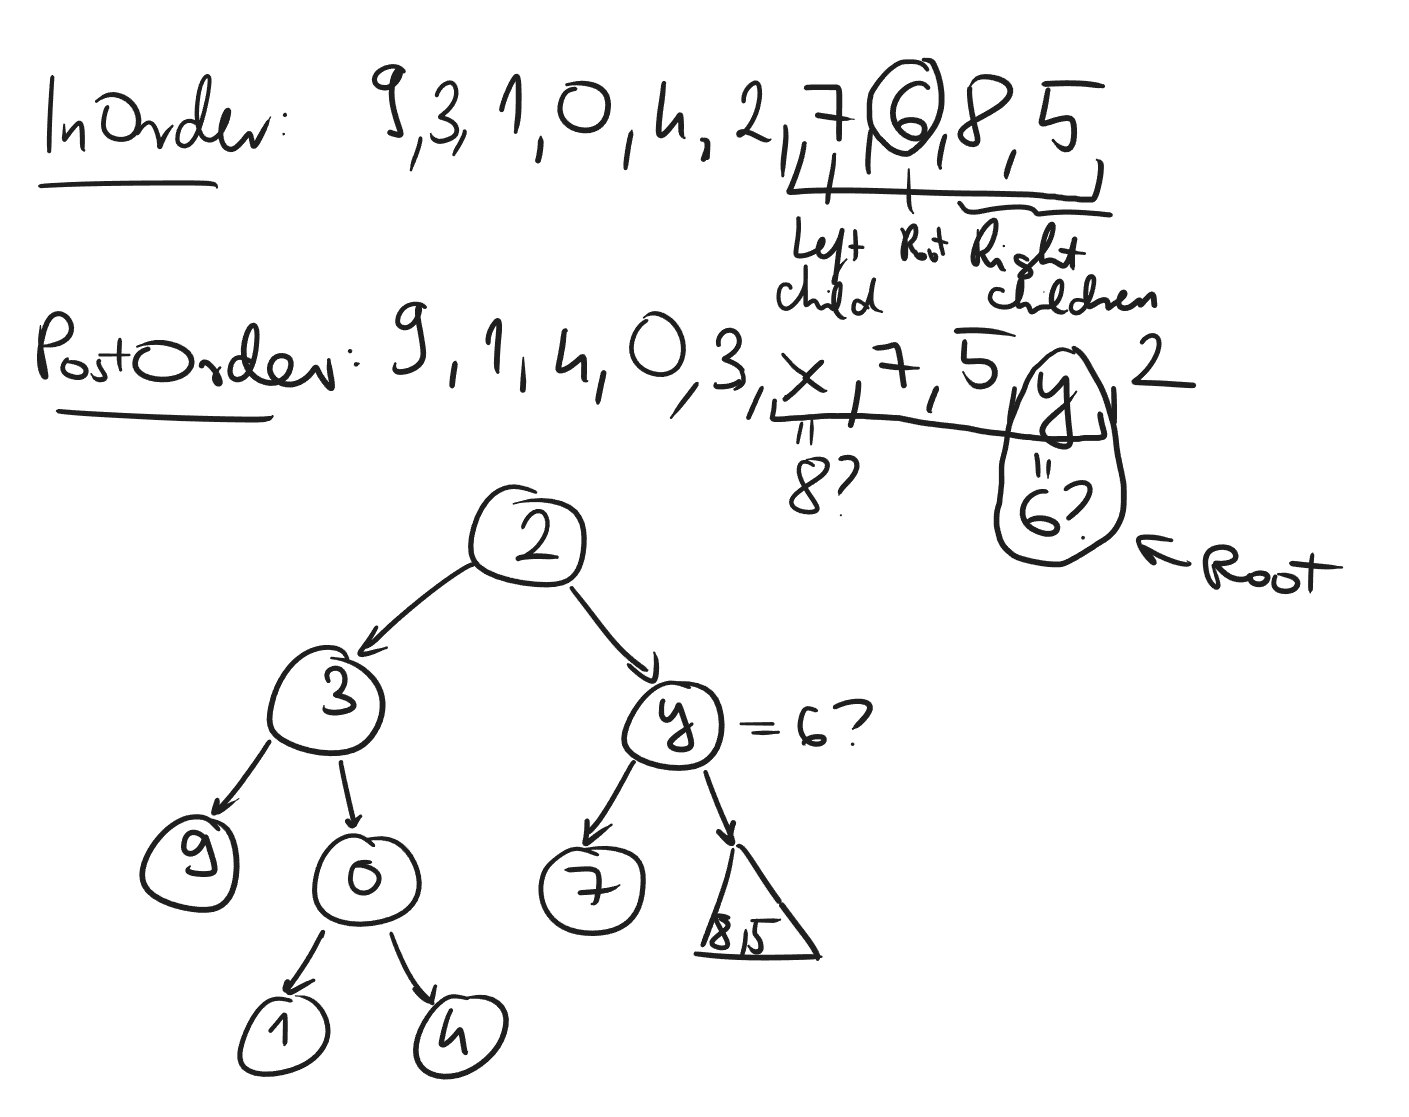 InOrder: 9,3,1,0,4,2,7,6,8,5
Left Root Right
child children
PostOrder: 9,1,4,0,3,x,7,5,y,2
=
8? = 6?
Root
2
3 y = 6?
9 0 7 8,5
1 4